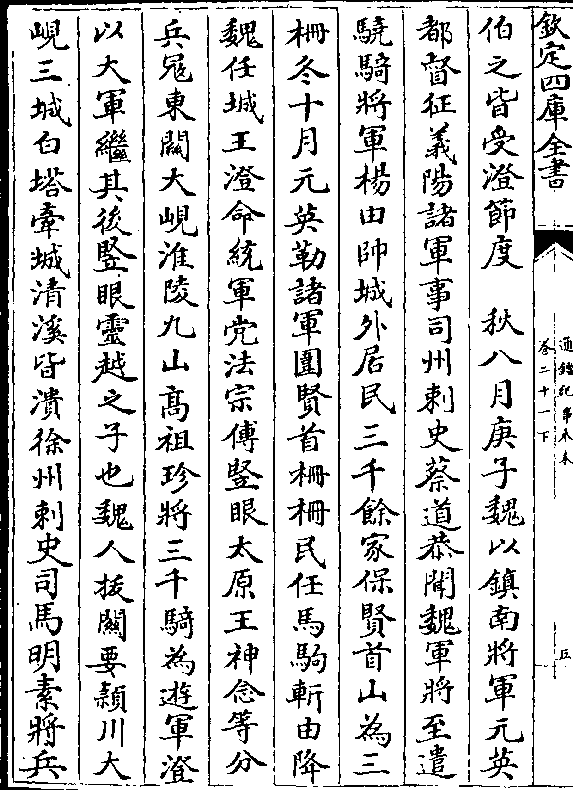 欽定四庫全書
通鑑紀事本末
卷二十一下
五
伯之皆受澄節度　秋八月庚子魏以鎮南將軍元英
都督征義陽諸軍事司州刺史蔡道恭聞魏軍將至遣
驍騎將軍楊由帥城外居民三千餘家保賢首山為三
柵冬十月元英勒諸軍圍賢首柵柵民任馬駒斬由降
魏任城王澄命統軍党法宗傅豎眼太原王神念等分
兵冦東關大峴淮陵九山高祖珍將三千騎為遊軍澄
以大軍繼其後豎眼靈越之子也魏人拔關要潁川大
峴三城白塔牽城清溪皆潰徐州刺史司馬明素將兵